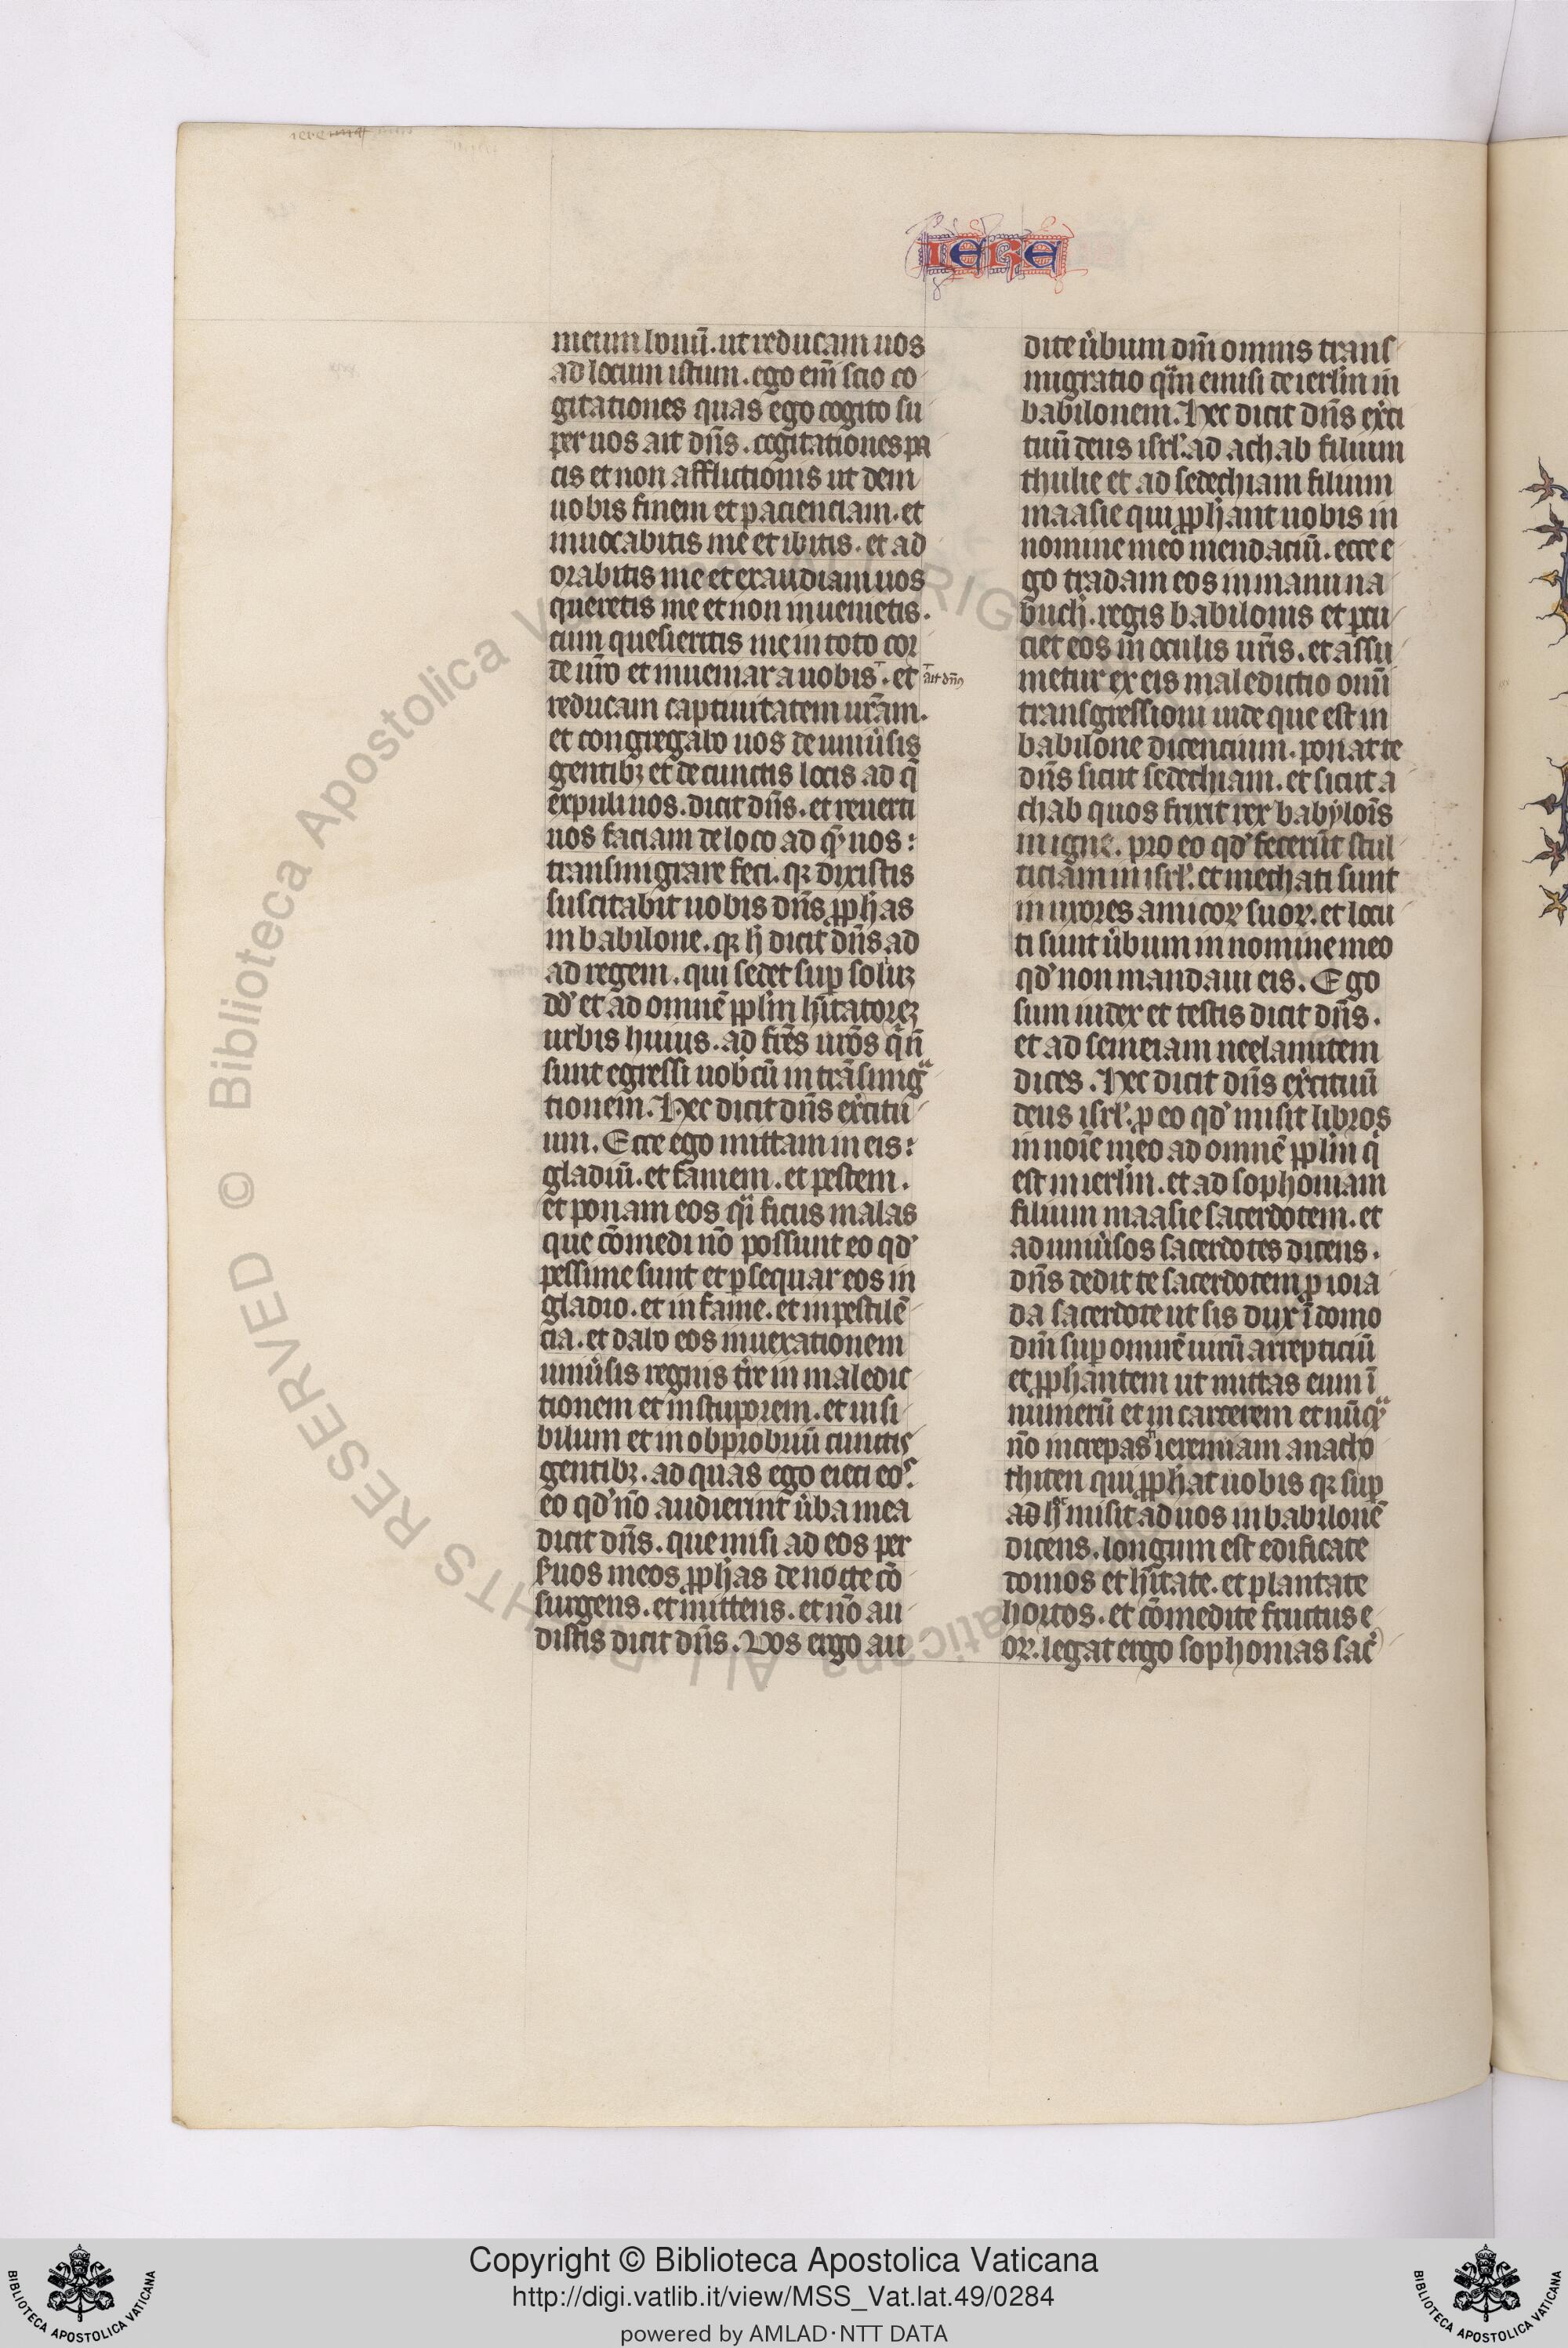 IERE
meum bonū. ut reducam uos
ad locum istum. ego em̄ scio co
gitationes quas ego cogito su
per uos ait dn̄s. cogitationes pa
cis et non afflictionis ut dem
uobis finem et pacienciam. et
inuocabitis me et ibitis. et ad
orabitis me et exaudiam uos
queretis me et non inuenietis.
cum quesieritis me in toto cor
de ur̄o et inueniar a uobis. et ait dn̄s
reducam captiuitatem urām.
et congregabo uos de uniu̓sis
gentibꝫ et de cunctis locis ad q̄
expuli uos. dicit dn̄s. et reuerti
uos faciam de loco ad q̄ uos:
transmigrare feci. qꝛ dixistis
suscitabit uobis dn̄s ꝓph̄as
in babilone. qꝛ h̄ dicit dn̄s ad
ad regem. qui sedet suꝑ soliuꝫ
dd̓ et ad omnē ppl̄m hītatoreꝫ
urbis huius. ad fr̄es ur̄os qͥ n̄
sunt egressi uob̓cū in trāsmigᵃ
tionem. Hec dicit dn̄s ex̓citu
um. Ecce ego mittam in eis:
gladiū. et famem. et pestem.
et ponam eos qͥi ficus malas
que cōmedi nō possunt eo qd̓
pessime sunt et ꝑsequar eos in
gladio. et in fame. et in pestilē
cia. et dabo eos in uexationem
uniu̓sis regnis tr̄e in maledic
tionem et in stuporem. et in si
bilum et in obprobriū cunctis
gentibꝫ. ad quas ego eieci eos.
eo qd̓ nō audierint u̓ba mea
dicit dn̄s. que misi ad eos per
s̓uos meos ꝓph̄as de nocte cō
surgens. et mittens. et nō au
distis dicit dn̄s. Uos ergo au
dite u̓bum dn̄i omnis trans
migratio qͣm emisi de ierl̄m in
babilonem. Hec dicit dn̄s ex̓ci
tuū deus isrl̓. ad achab filium
thulie et ad sedechiam filium
maasie qui ꝓph̄ant uobis in
nomine meo mendaciū. ecce e
go tradam eos in manu na
buch̓. regis babilonis et ꝑcu
ciet eos in oculis ur̄is. et assu
metur ex eis maledictio omī
transgressioni iude que est in
babilone dicencium. ponat te
dn̄s sicut sedechiam. et sicut a
chab quos frixit rex babyloīs
in igne. pro eo qd̓ fecerūt stul
ticiam in isrl̓. et mechati sunt
in uxores amicoꝝ suoꝝ. et locu
ti sunt u̓bum in nomine meo
qd̓ non mandaui eis. Ego
sum iudex et testis dicit dn̄s.
et ad semeiam neelamitem
dices. Hec dicit dn̄s ex̓cituū
deus isrl̓. ꝑ eo qd̓ misit libros
in noīe meo ad omnē ppl̄m qͥ
est in ierl̄m. et ad sophoniam
filium maasie sacerdotem. et
ad uniu̓sos sacerdotes dicens.
dn̄s dedit te sacerdotem ꝑ ioia
da sacerdote ut sis dux ī domo
dn̄i suꝑ omnē uirū arrepticiū
et ꝓph̄antem ut mittas eum ī
nūmerū et in carcerem et nūc qͣ
nō increpas ieremiam anatho
thiten qui ꝓph̄at uobis qꝛ suꝑ
ad h̄ misit ad uos in babilonē
dicens. longum est edificate
domos et hītate. et plantate
hortos. et cōmedite fructus e
oꝝ. legat ergo sophonias sac̄
Copyright © Biblioteca Apostolica Vaticana
http://digi.vatlib.it/view/MSS_Vat.lat.49/0284
powered by AMLAD·NTT DATA